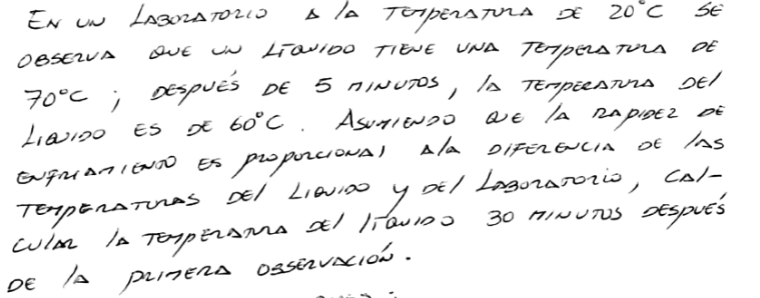 EN UN LABORATORIO A la TEMPERATURA DE 20°C SE
OBSERVA QUE UN LÍQUIDO TIENE UNA TEMPERATURA DE
70°C ; DESPUÉS DE 5 MINUTOS, la TEMPERATURA DEl
LIQUIDO ES DE 60°C. ASUMIENDO QUE lA RAPIDEZ DE
ENFRIAMIENTO ES PROPORCIONAl A lA DIFERENCIA DE lAS
TEMPERATURAS DEl LIQUIDO y DEl LABORATORIO, CAL-
CULAR lA TEMPERATURA DEl lÍQUIDO 30 MINUTOS DESPUÉS
DE lA PRIMERA OBSERVACIÓN.